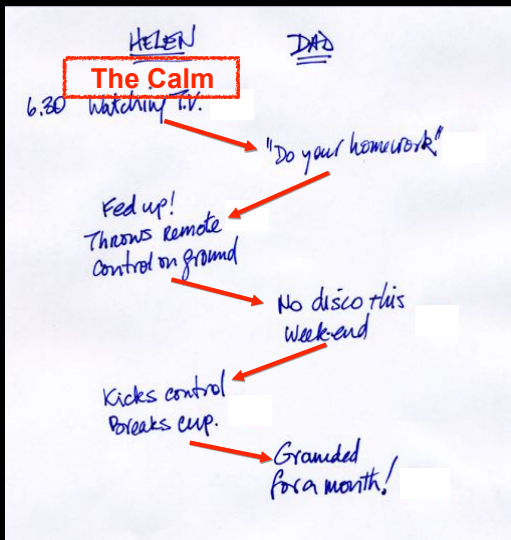 HELEN DAD
The Calm
6.30 Watching T.V.
"Do your homework"
Fed up!
Throws Remote
Control on ground
No disco this
Week-end
Kicks control
Breaks cup.
Grounded
for a month!